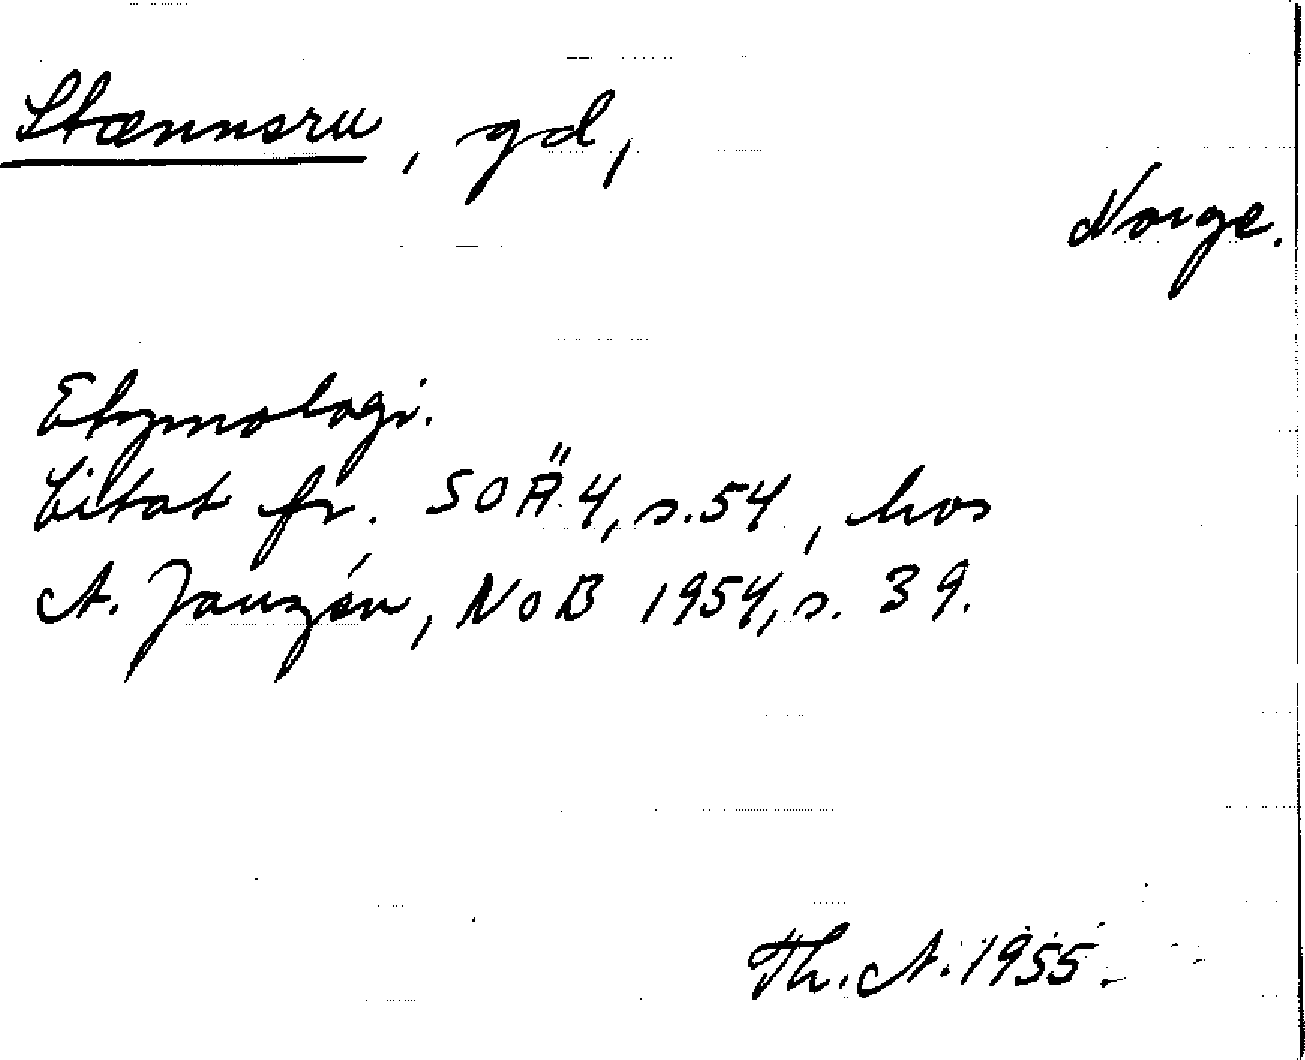 Stænnsru, gd,
Norge.
Etymologi.
Citat fr. SOÄ 4, s. 54, hos
A. Janzén, NoB 1954, s. 39.
Th. A. 1955.